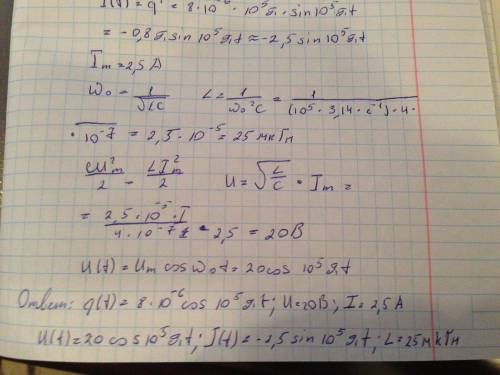 I(t) = q' = 8·10⁻⁶ · 10⁵π · sin10⁵πt
= -0,8π sin 10⁵πt ≈ -2,5 sin10⁵πt
Im = 2,5 A
ω₀ = 1/√LC   L = 1/ω₀²C = 1/(10⁵ · 3,14 · c⁻¹) · 4 ·
· 10⁻⁷ = 2,5 · 10⁻⁵ = 25 мкГн
cU²m/2 = LI²m/2   U = √L/C · Im =
= 2,5·10⁻⁵·I/4·10⁻⁷ · 2,5 = 20В
u(t) = Um cosω₀t = 20cos 10⁵πt
Ответ: q(t) = 8·10⁻⁶cos 10⁵πt; U=20В; I = 2,5 A
u(t) = 20 cos 10⁵πt; I(t) = -2,5 sin 10⁵πt; L = 25мкГн